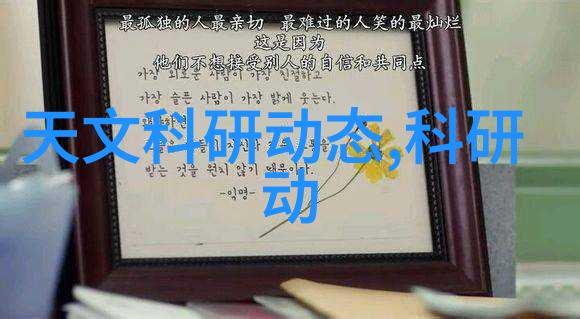 最孤独的人最亲切 最难过的人笑的最灿烂
这是因为
他们不想接受别人的自信和共同点
가장 외로운 사람이 가장 친절하고
가장 슬픈 사람이 가장 밝게 웃는다.
왜냐하면
들은
받는 것을 원치 않기 때문이다.
-익명-
天文科研动态,科研
动